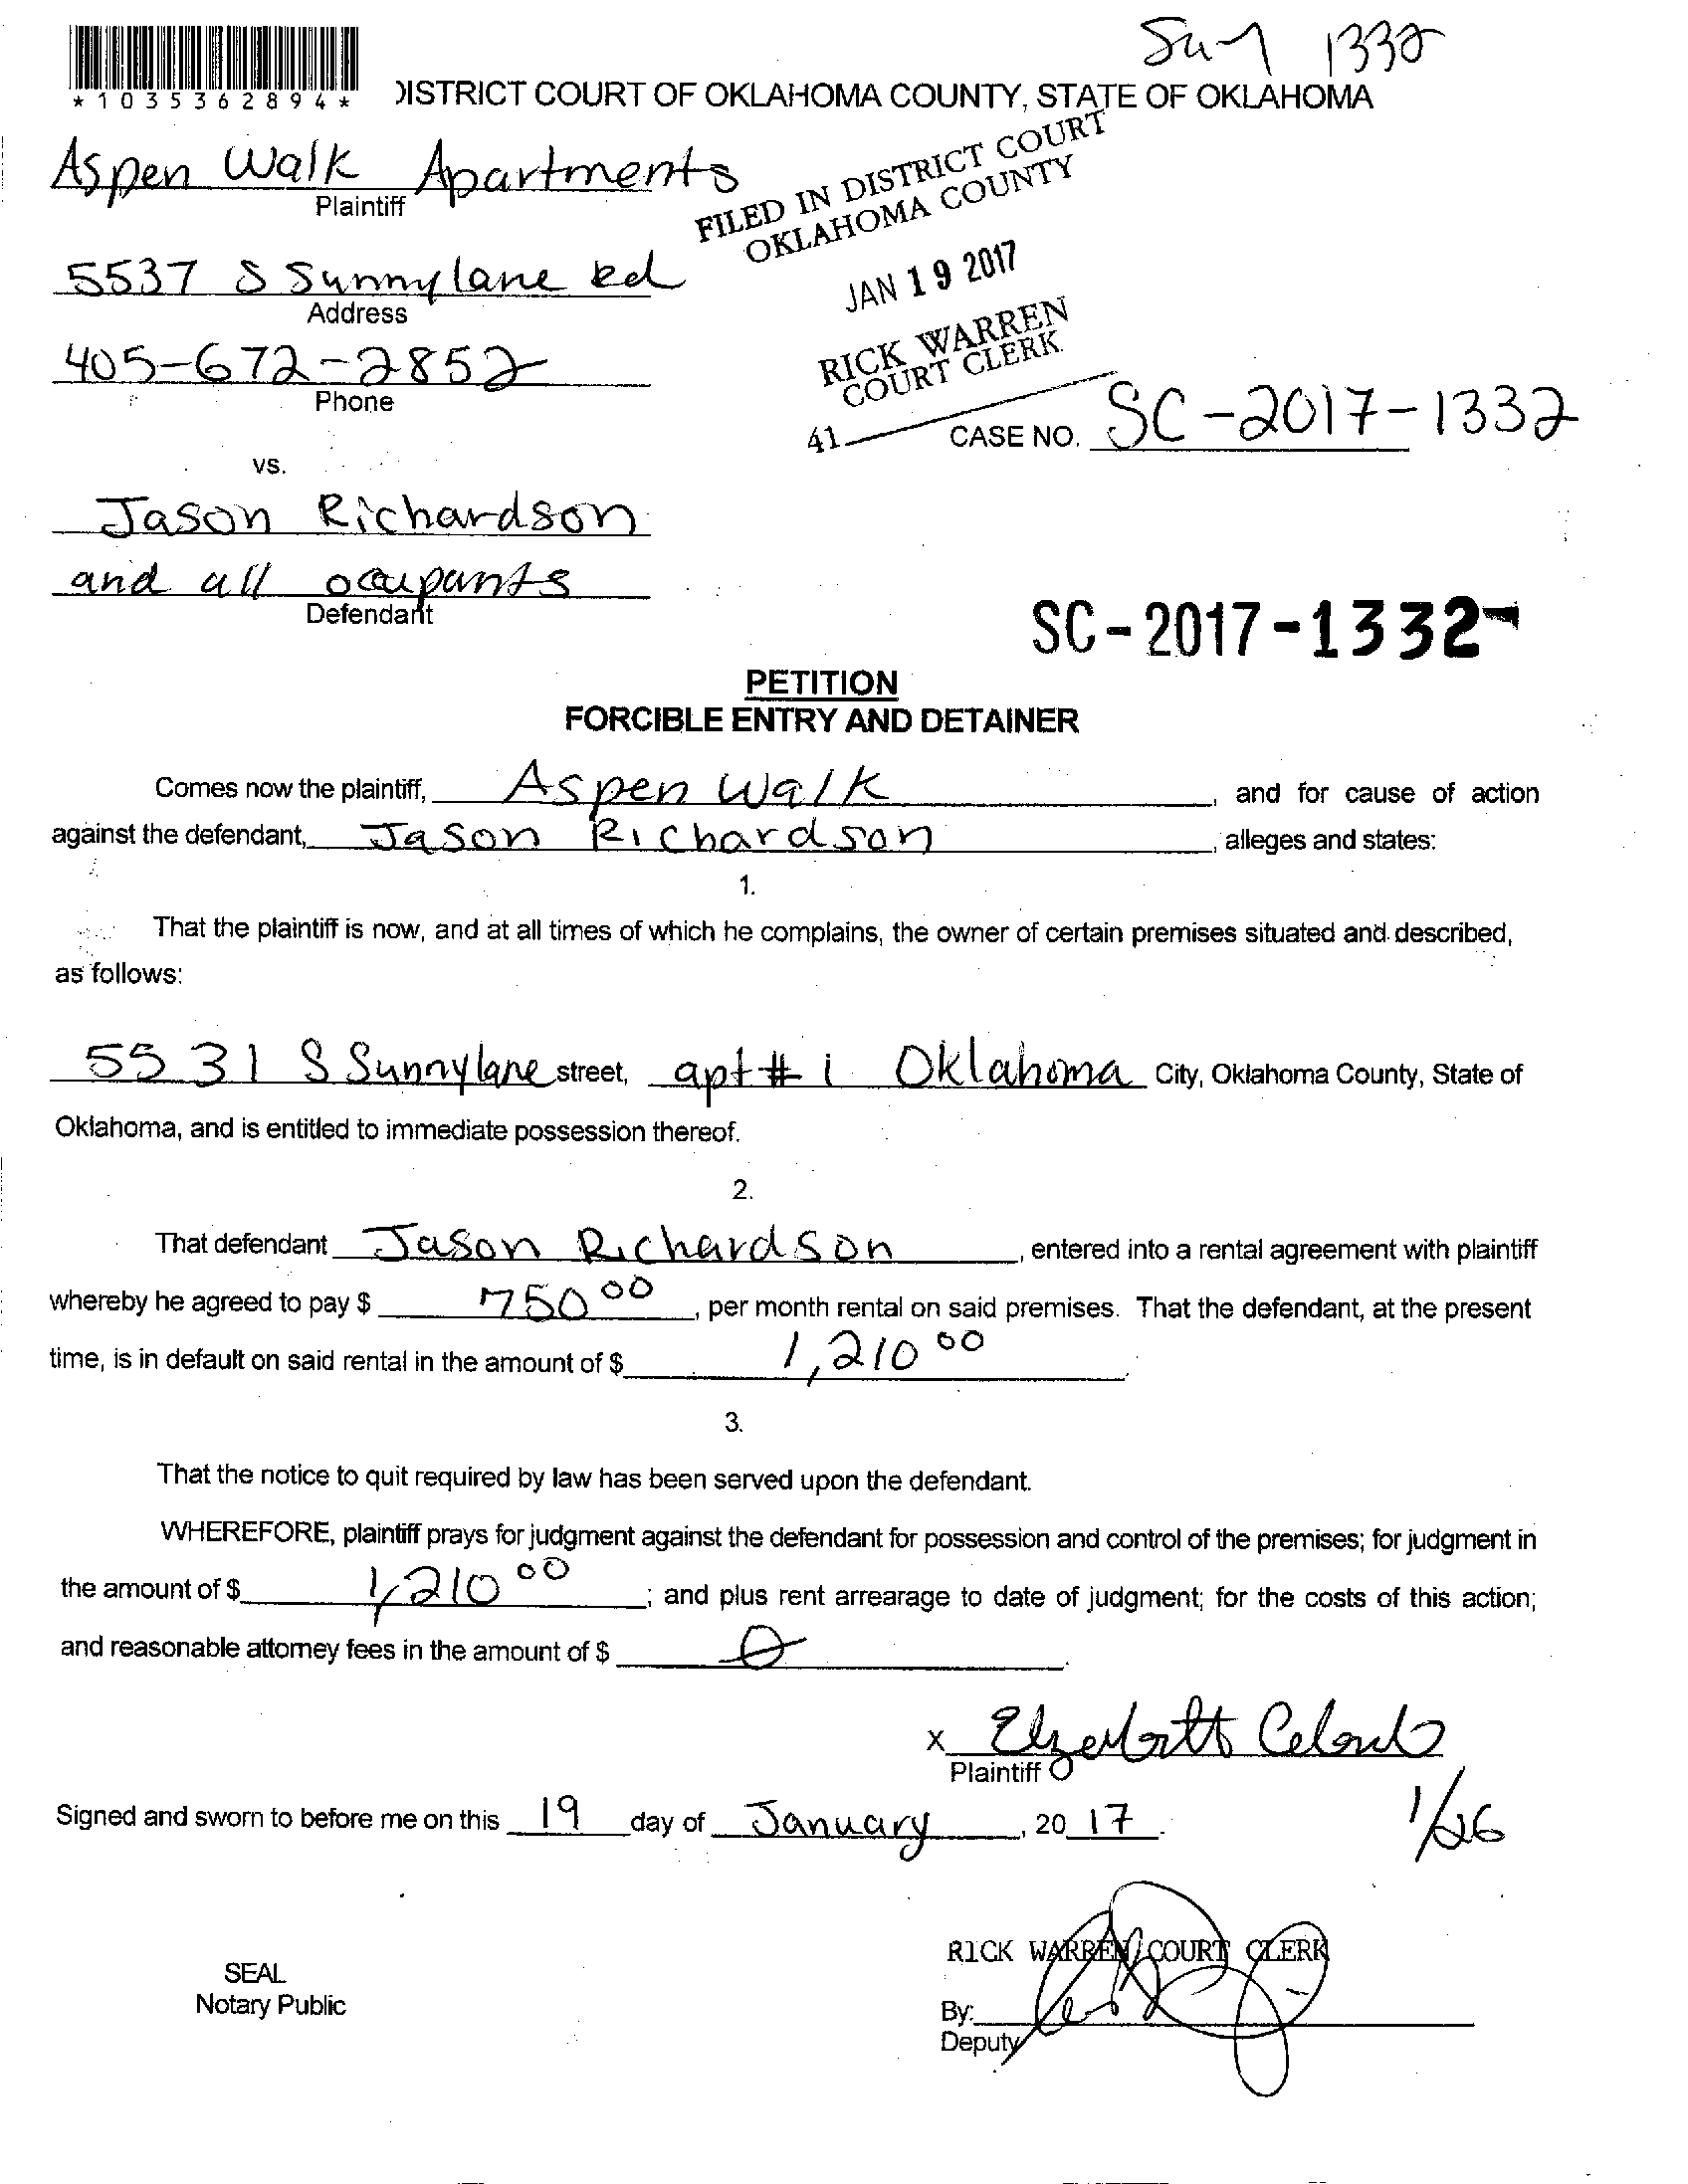 1332
*1035362894*
DISTRICT COURT OF OKLAHOMA COUNTY, STATE OF OKLAHOMA
Aspen Walk Apartments
Plaintiff
FILED IN DISTRICT COURT
OKLAHOMA COUNTY
5537 S Sunnylane Rd
Address
JAN 19 2017
405-672-2852
Phone
RICK WARREN
COURT CLERK
41
CASE NO. SC-2017-1332
vs.
Jason Richardson
and all occupants
Defendant
SC-2017-1332
PETITION
FORCIBLE ENTRY AND DETAINER
Comes now the plaintiff, Aspen Walk, and for cause of action
against the defendant, Jason Richardson, alleges and states:
1.
That the plaintiff is now, and at all times of which he complains, the owner of certain premises situated and described,
as follows:
5531 S Sunnylane street, apt # 1 Oklahoma City, Oklahoma County, State of
Oklahoma, and is entitled to immediate possession thereof.
2.
That defendant Jason Richardson, entered into a rental agreement with plaintiff
whereby he agreed to pay $ 750 00, per month rental on said premises. That the defendant, at the present
time, is in default on said rental in the amount of $ 1,210 00.
3.
That the notice to quit required by law has been served upon the defendant.
WHEREFORE, plaintiff prays for judgment against the defendant for possession and control of the premises; for judgment in
the amount of $ 1,210 00; and plus rent arrearage to date of judgment; for the costs of this action;
and reasonable attorney fees in the amount of $ 0.
x
Plaintiff
Signed and sworn to before me on this 19 day of January, 20 17.
1/26
RICK WARREN, COURT CLERK
SEAL
Notary Public
By:
Deputy